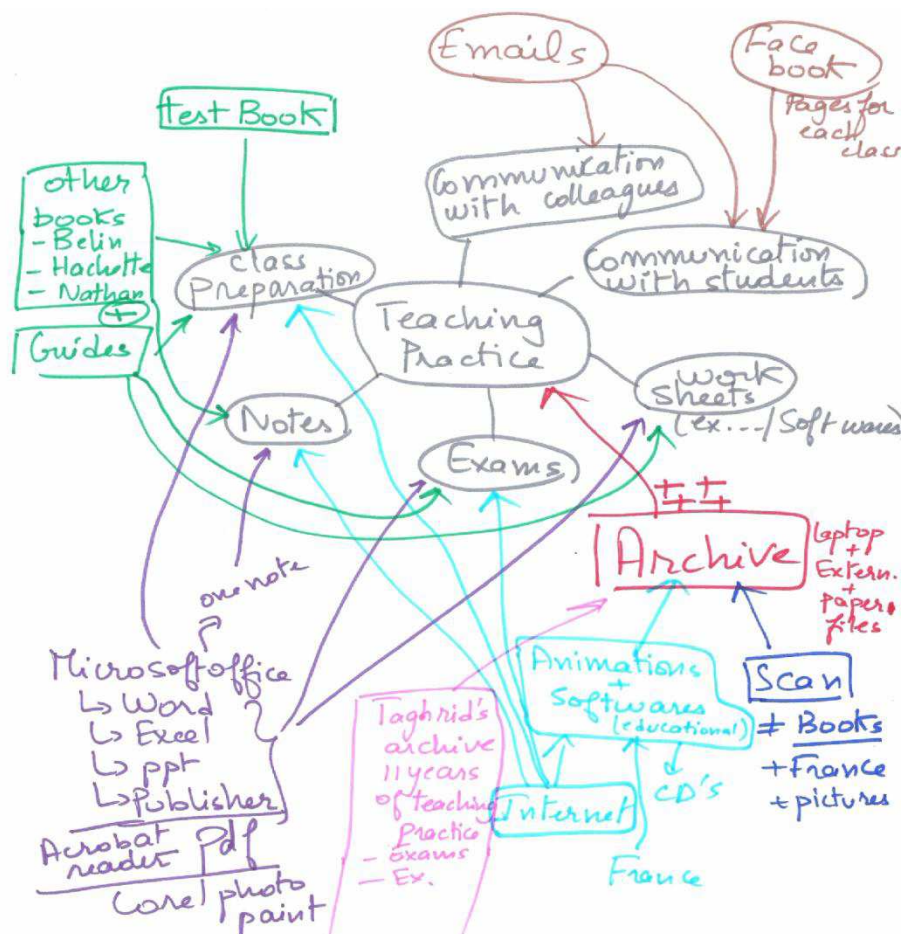 Emails
Face
book
Pages for
each
class
test Book
Communication
with colleagues
other
books
- Belin
- Hachette
- Nathan
+
Guides
Class
Preparation
Communication
with students
Teaching
Practice
Work
Sheets
(ex..../Softwares)
Notes
Exams
++ ++
Archive
laptop
+
Extern.
+
paper
files
one note
Microsoft office
↳ Word
↳ Excel
↳ ppt
↳ Publisher
Acrobat
reader
Pdf
Corel photo
paint
Taghrid's
archive
11 years
of teaching
practice
- Exams
- Ex.
Animations
+
Softwares
(educational)
CD's
Internet
France
Scan
≠ Books
+ France
+ pictures